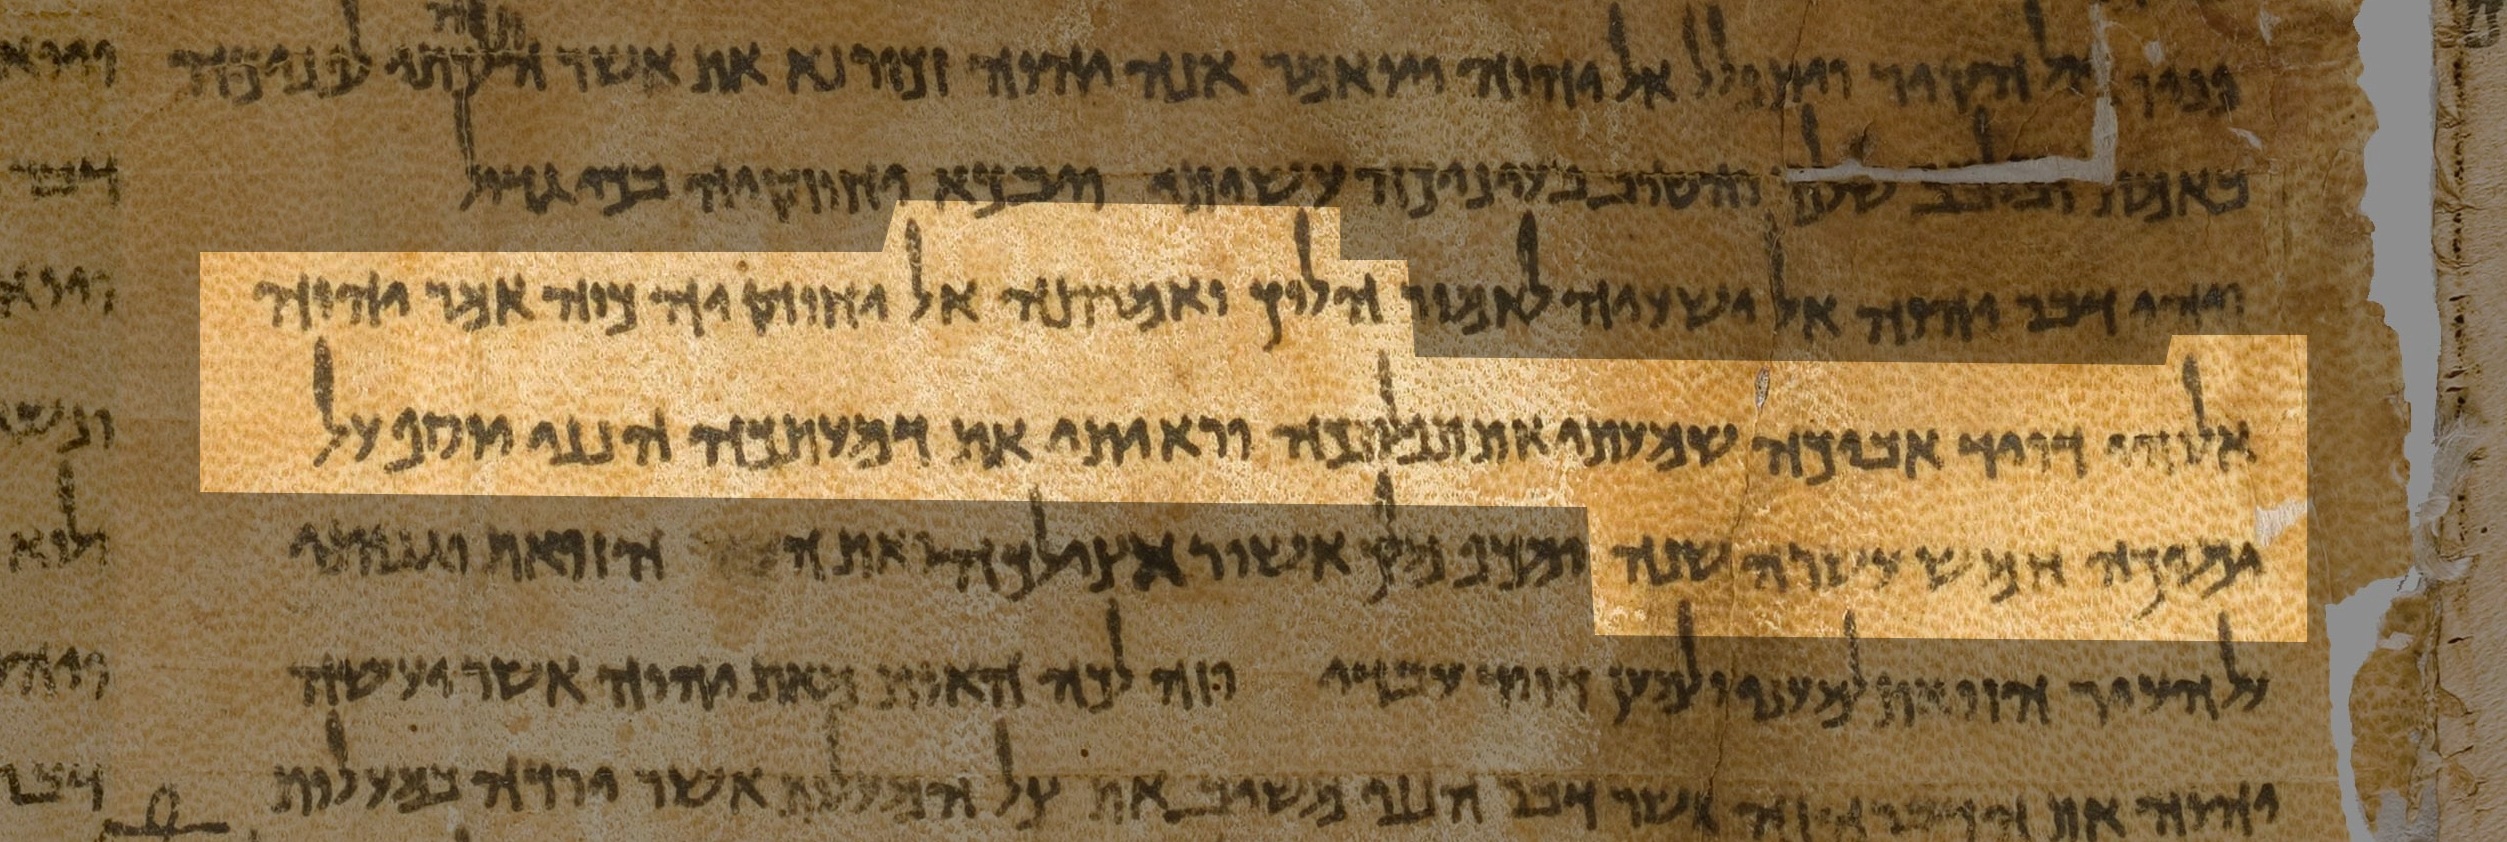 פניו אל הקיר ויתפלל אל יהוה ויואמר אנה יהוה זכורנא את אשר התהלכתי לפניכה
באמת ובלב שלם והטוב בעיניכה עשיתי ויבכא יחוזקיה בכי גדול
ויהי דבר יהוה אל ישעיה לאמור הלוך ואמרתה אל יחוזקיה כוה אמר יהוה
אלוהי דויד אביכה שמעתי את תפלתכה וראיתי את דמעתכה הנני יוסף על
ימיכה חמש עשרה שנה ומכף מלך אשור אצילכה ואת העיר הזואת וגנותי
על העיר הזואת למעני ולמען דויד עבדי וזה לכה האות מאת יהוה אשר יעשה
יהוה את הדבר הזה אשר דבר הנני משיב את צל המעלות אשר ירדה במעלות